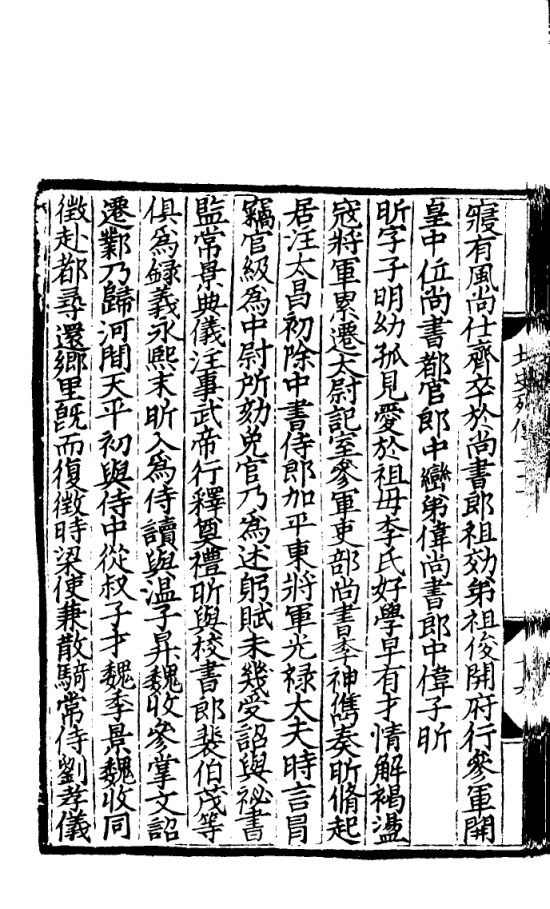 寢有風尚仕齊卒於尚書郎祖効弟祖俊開府行參軍開
皇中位尚書都官郎中巒弟偉尚書郎中偉子昕
昕字子明幼孤見愛於祖母李氏好學早有才情解褐盪
寇將軍累遷太尉記室參軍吏部尚書李神儁奏昕脩起
居注太昌初除中書侍郎加平東將軍光禄大夫時言冒
竊官級爲中尉所劾免官乃爲述躬賦未幾受詔與祕書
監常景典儀注事武帝行釋奠禮昕與校書郎裴伯茂等
俱爲録義永熙末昕入爲侍讀與温子昇魏收參掌文詔
遷鄴乃歸河間天平初與侍中從叔子才魏季景魏收同
徵赴都尋還鄉里旣而復徵時梁使兼散騎常侍劉孝儀